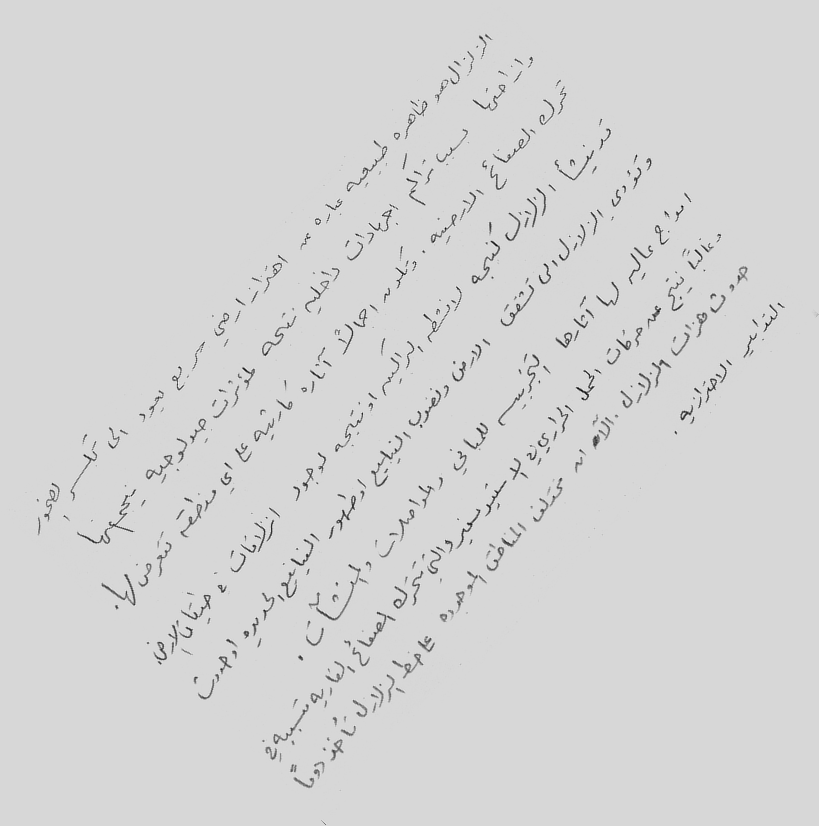 الزلزال هو ظاهره طبيعيه عباره عن اهتزاز ارضي سريع يعود الى تكسر الصخور
وازاحتها بسبب تراكم اجهادات داخليه نتيجه لمؤثرات جيولوجيه ينجم عنها
تحرك الصفائح الارضيه. وتكون اجمالاً آثاره كارثيه على اي منطقه تتعرض لها.
قد ينشأ الزلازل كنتيجه لانشطه البراكين او نتيجه لوجود انزلاقات في طبقات الارض.
وتؤدي الزلازل الى تشقق الارض ونضوب الينابيع او ظهور الينابيع الجديده او حدوث
امواج عاليه لها آثارها التخريبيه للمباني والمواصلات والمنشآت.
وغالباً ينتج عن حركات الحمل الحراري في الاستينوسفير والتي تتحرك الصفائح القاريه متسببه في
حدوث هزات والزلازل. الآن مختلف المناطق الموجوده على خط الزلازل تأخذ دوماً
التدابير الاحترازيه.